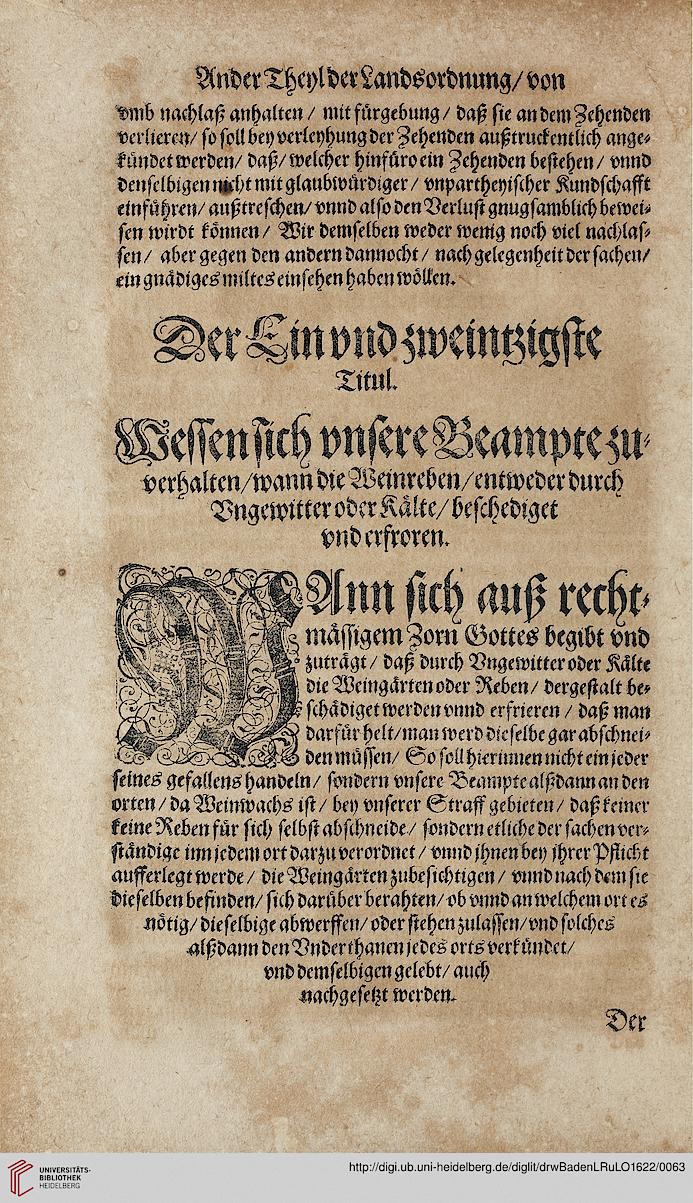 Ander Theyl der Landsordnung/ von
vmb nachlaß anhalten / mit fürgebung / daß sie an dem Zehenden
verlieren/ so soll bey verleyhung der Zehenden außtruckentlich ange-
kündet werden/ daß/ welcher hinfüro ein Zehenden bestehen / vnnd
denselbigen nicht mit glaubwürdiger / vnpartheyischer Kundschafft
einführen/ außtreschen/ vnnd also den Verlust gnugsamblich bewei-
sen wirdt können / Wir demselben weder wenig noch viel nachlas-
sen / aber gegen den andern dannocht / nach gelegenheit der sachen/
ein gnädiges miltes einsehen haben wöllen.
Der Ein vnd zweintzigste
Titul.
Wessen sich vnsere Beampte zu-
verhalten/ wann die Weinreben/ entweder durch
Vngewitter oder Kälte/ beschediget
vnd erfroren.
WAnn sich auß recht-
mässigem Zorn Gottes begibt vnd
zuträgt / daß durch Vngewitter oder Kälte
die Weingärten oder Reben / dergestalt be-
schädiget werden vnnd erfrieren / daß man
darfür helt/ man werd dieselbe gar abschnei-
den müssen/ So soll hierinnen nicht ein jeder
seines gefallens handeln/ sondern vnsere Beampte alßdann an den
orten / da Weinwachs ist / bey vnserer Straff gebieten / daß keiner
keine Reben für sich selbst abschneide/ sondern etliche der sachen ver-
ständige inn jedem ort darzu verordnet / vnnd jhnen bey jhrer Pflicht
aufferlegt werde / die Weingärten zubesichtigen / vnnd nach dem sie
dieselben befinden/ sich darüber berahten/ ob vnnd an welchem ort es
nötig/ dieselbige abwerffen/ oder stehen zulassen/ vnd solches
alßdann den Vnderthanen jedes orts verkündet/
vnd demselbigen gelebt/ auch
nachgesetzt werden.
Der
UNIVERSITÄTS-
BIBLIOTHEK
HEIDELBERG
http://digi.ub.uni-heidelberg.de/diglit/drwBadenLRuLO1622/0063